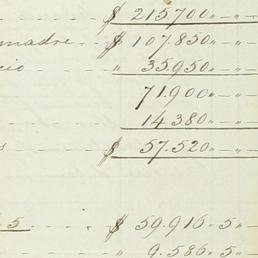 $ 215.700 " — " —
madre. $ 107.850 " — " —
cio " 35.950 " — " —
71.900 " — " —
14.380 " — " —
s $ 57.520 " — " —
5 $ 59.916 . 5 " —
" 9.586 . 5 " —